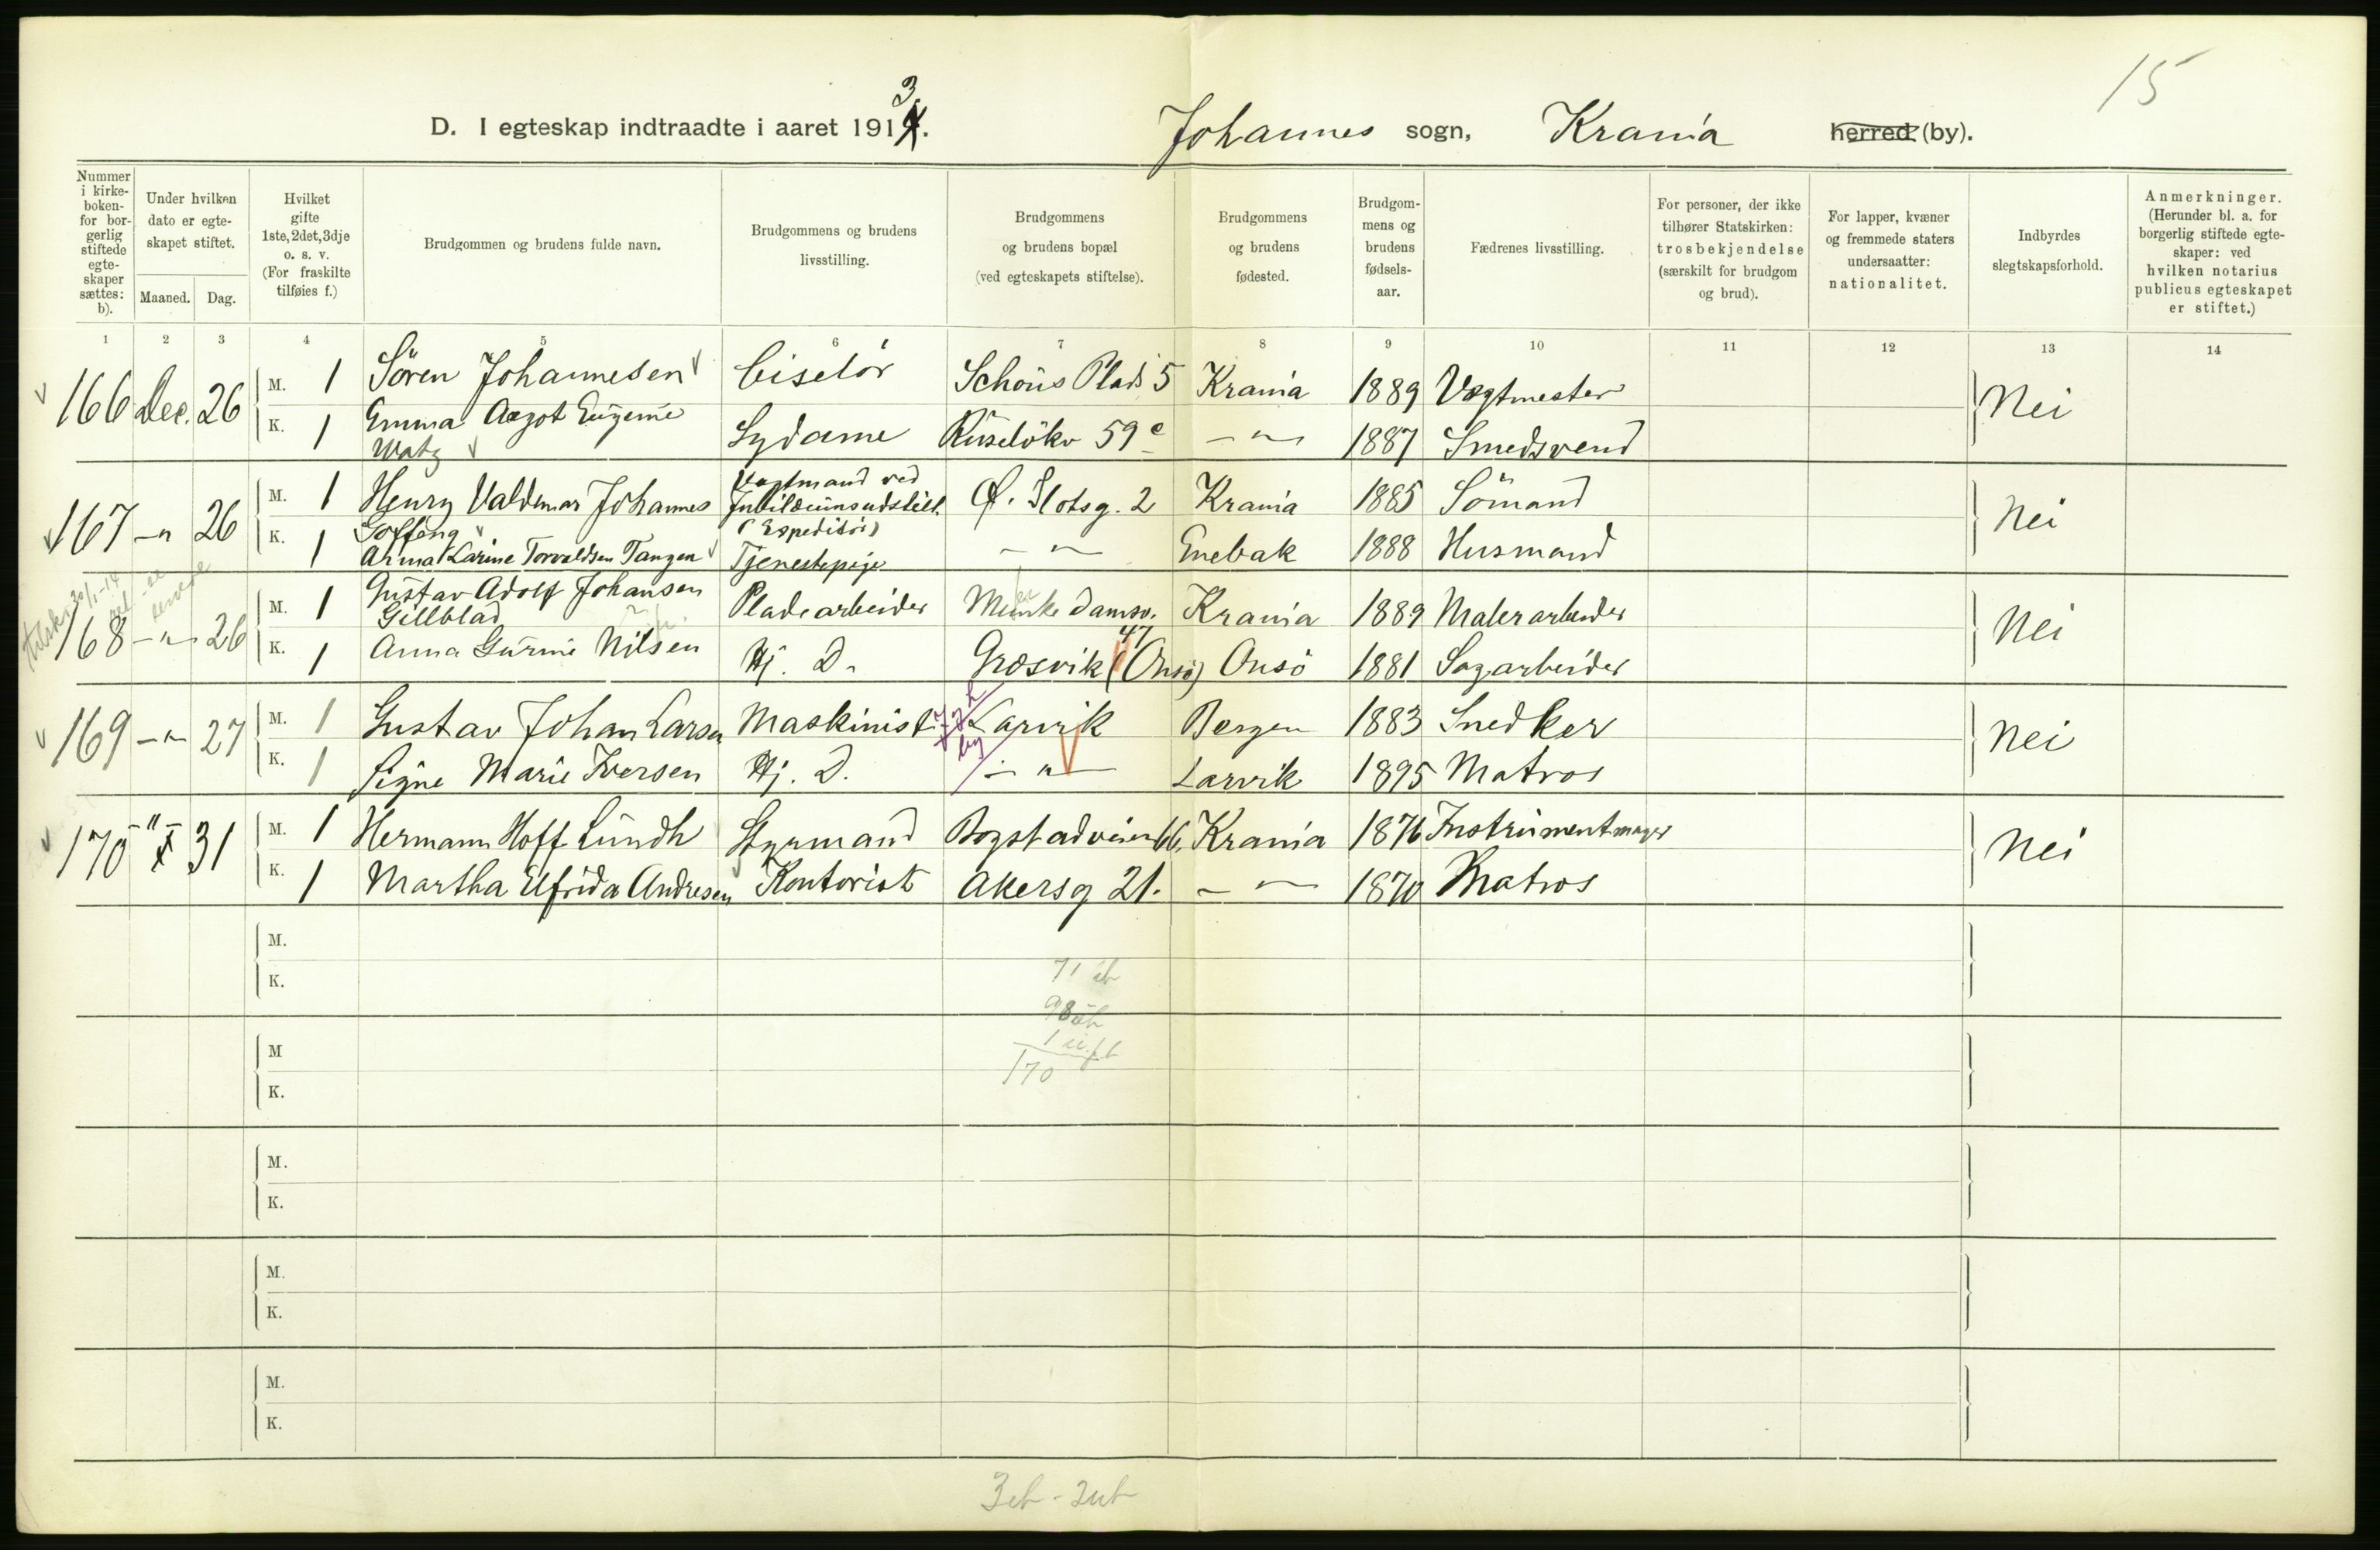 15
D. I egteskap indtraadte i aaret 1913.
Johannes sogn, Krania herred (by).
Nummer i kirke-boken- for bor-gerlig stiftede egte-skaper sættes: b).
Under hvilken dato er egte-skapet stiftet.
Maaned. Dag.
Hvilket gifte 1ste, 2det, 3dje o. s. v. (For fraskilte tilføies f.)
Brudgommen og brudens fulde navn.
Brudgommens og brudens livsstilling.
Brudgommens og brudens bopæl (ved egteskapets stiftelse).
Brudgommens og brudens fødested.
Brudgom-mens og brudens fødsels-aar.
Fædrenes livsstilling.
For personer, der ikke tilhører Statskirken: trosbekjendelse (særskilt for brudgom og brud).
For lapper, kvæner og fremmede staters undersaatter: nationalitet.
Indbyrdes slegtskapsforhold.
Anmerkninger. (Herunder bl. a. for borgerlig stiftede egte-skaper: ved hvilken notarius publicus egteskapet er stiftet.)
1 2 3 4 5 6 7 8 9 10 11 12 13 14
166 Dec. 26 M. 1 Sören Johannesen Ciselör Schous Plads 5 Krania 1889 Vægtmester Nei
K. 1 Emma Aagot Eugenie Watz Sydame Ruselökv 59c — " — 1887 Smedsvend
167 — " 26 M. 1 Henry Valdemar Johannes Solfeng Vagtmand ved Jubilæumsudstill. (Expeditör) Ø. Slotsg. 2 Krania 1885 Sömand Nei
K. 1 Anna Karine Torvaldsen Tangen Tjenestepige — " — Enebak 1888 Husmand
168 — " — 26 M. 1 Gustav Adolf Johansen Gillblad Pladearbeider Munkedamsv. 47 Krania 1889 Malerarbeider Nei
K. 1 Anna Gurine Nilsen Hj. D. Græsvik (Onsö) Onsö 1881 Sagarbeider
169 — " — 27 M. 1 Gustav Johan Larsen Maskinist Larvik Bergen 1883 Snedker Nei
K. 1 Signe Marie Iversen Hj. D. — " — Larvik 1895 Matros
170 — " — 31 M. 1 Hermann Hoff Lundh Styrmand Bogstadveien 66. Krania 1876 Instrumentmager Nei
K. 1 Martha Elfrida Andresen Kontorist Akersg 21. — " — 1870 Matros
M.
K.
71
98
1
170
M
K.
M.
K.
M.
K.
M.
K.